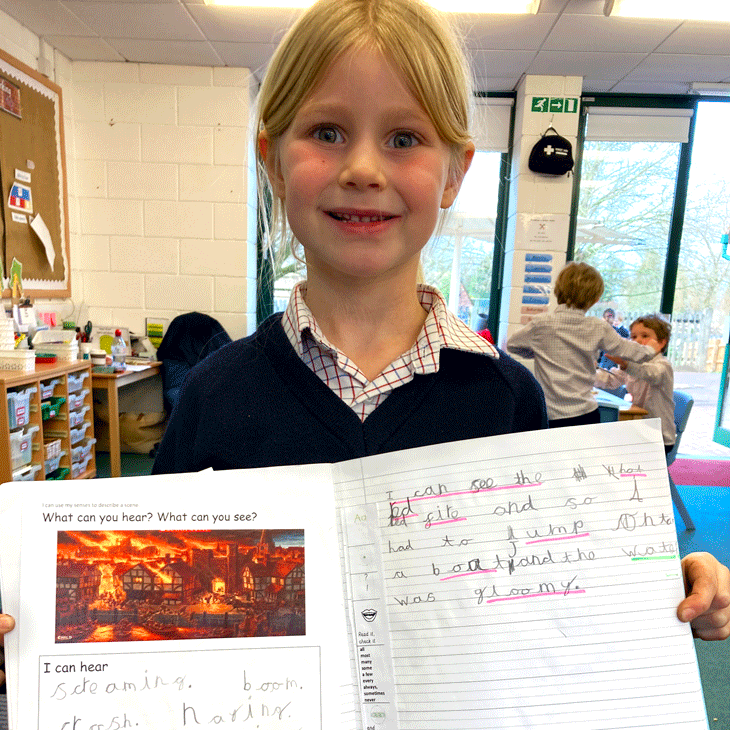 I can use my senses to describe a scene
What can you hear? What can you see?
I can hear
screaming. boom.
crash. Naring.
I can see the hot
red fire and so I
had to jump Onto
a boat and the wate
was gloomy.
Read it,
check it
all
most
many
some
a few
every
always,
sometimes
never
and